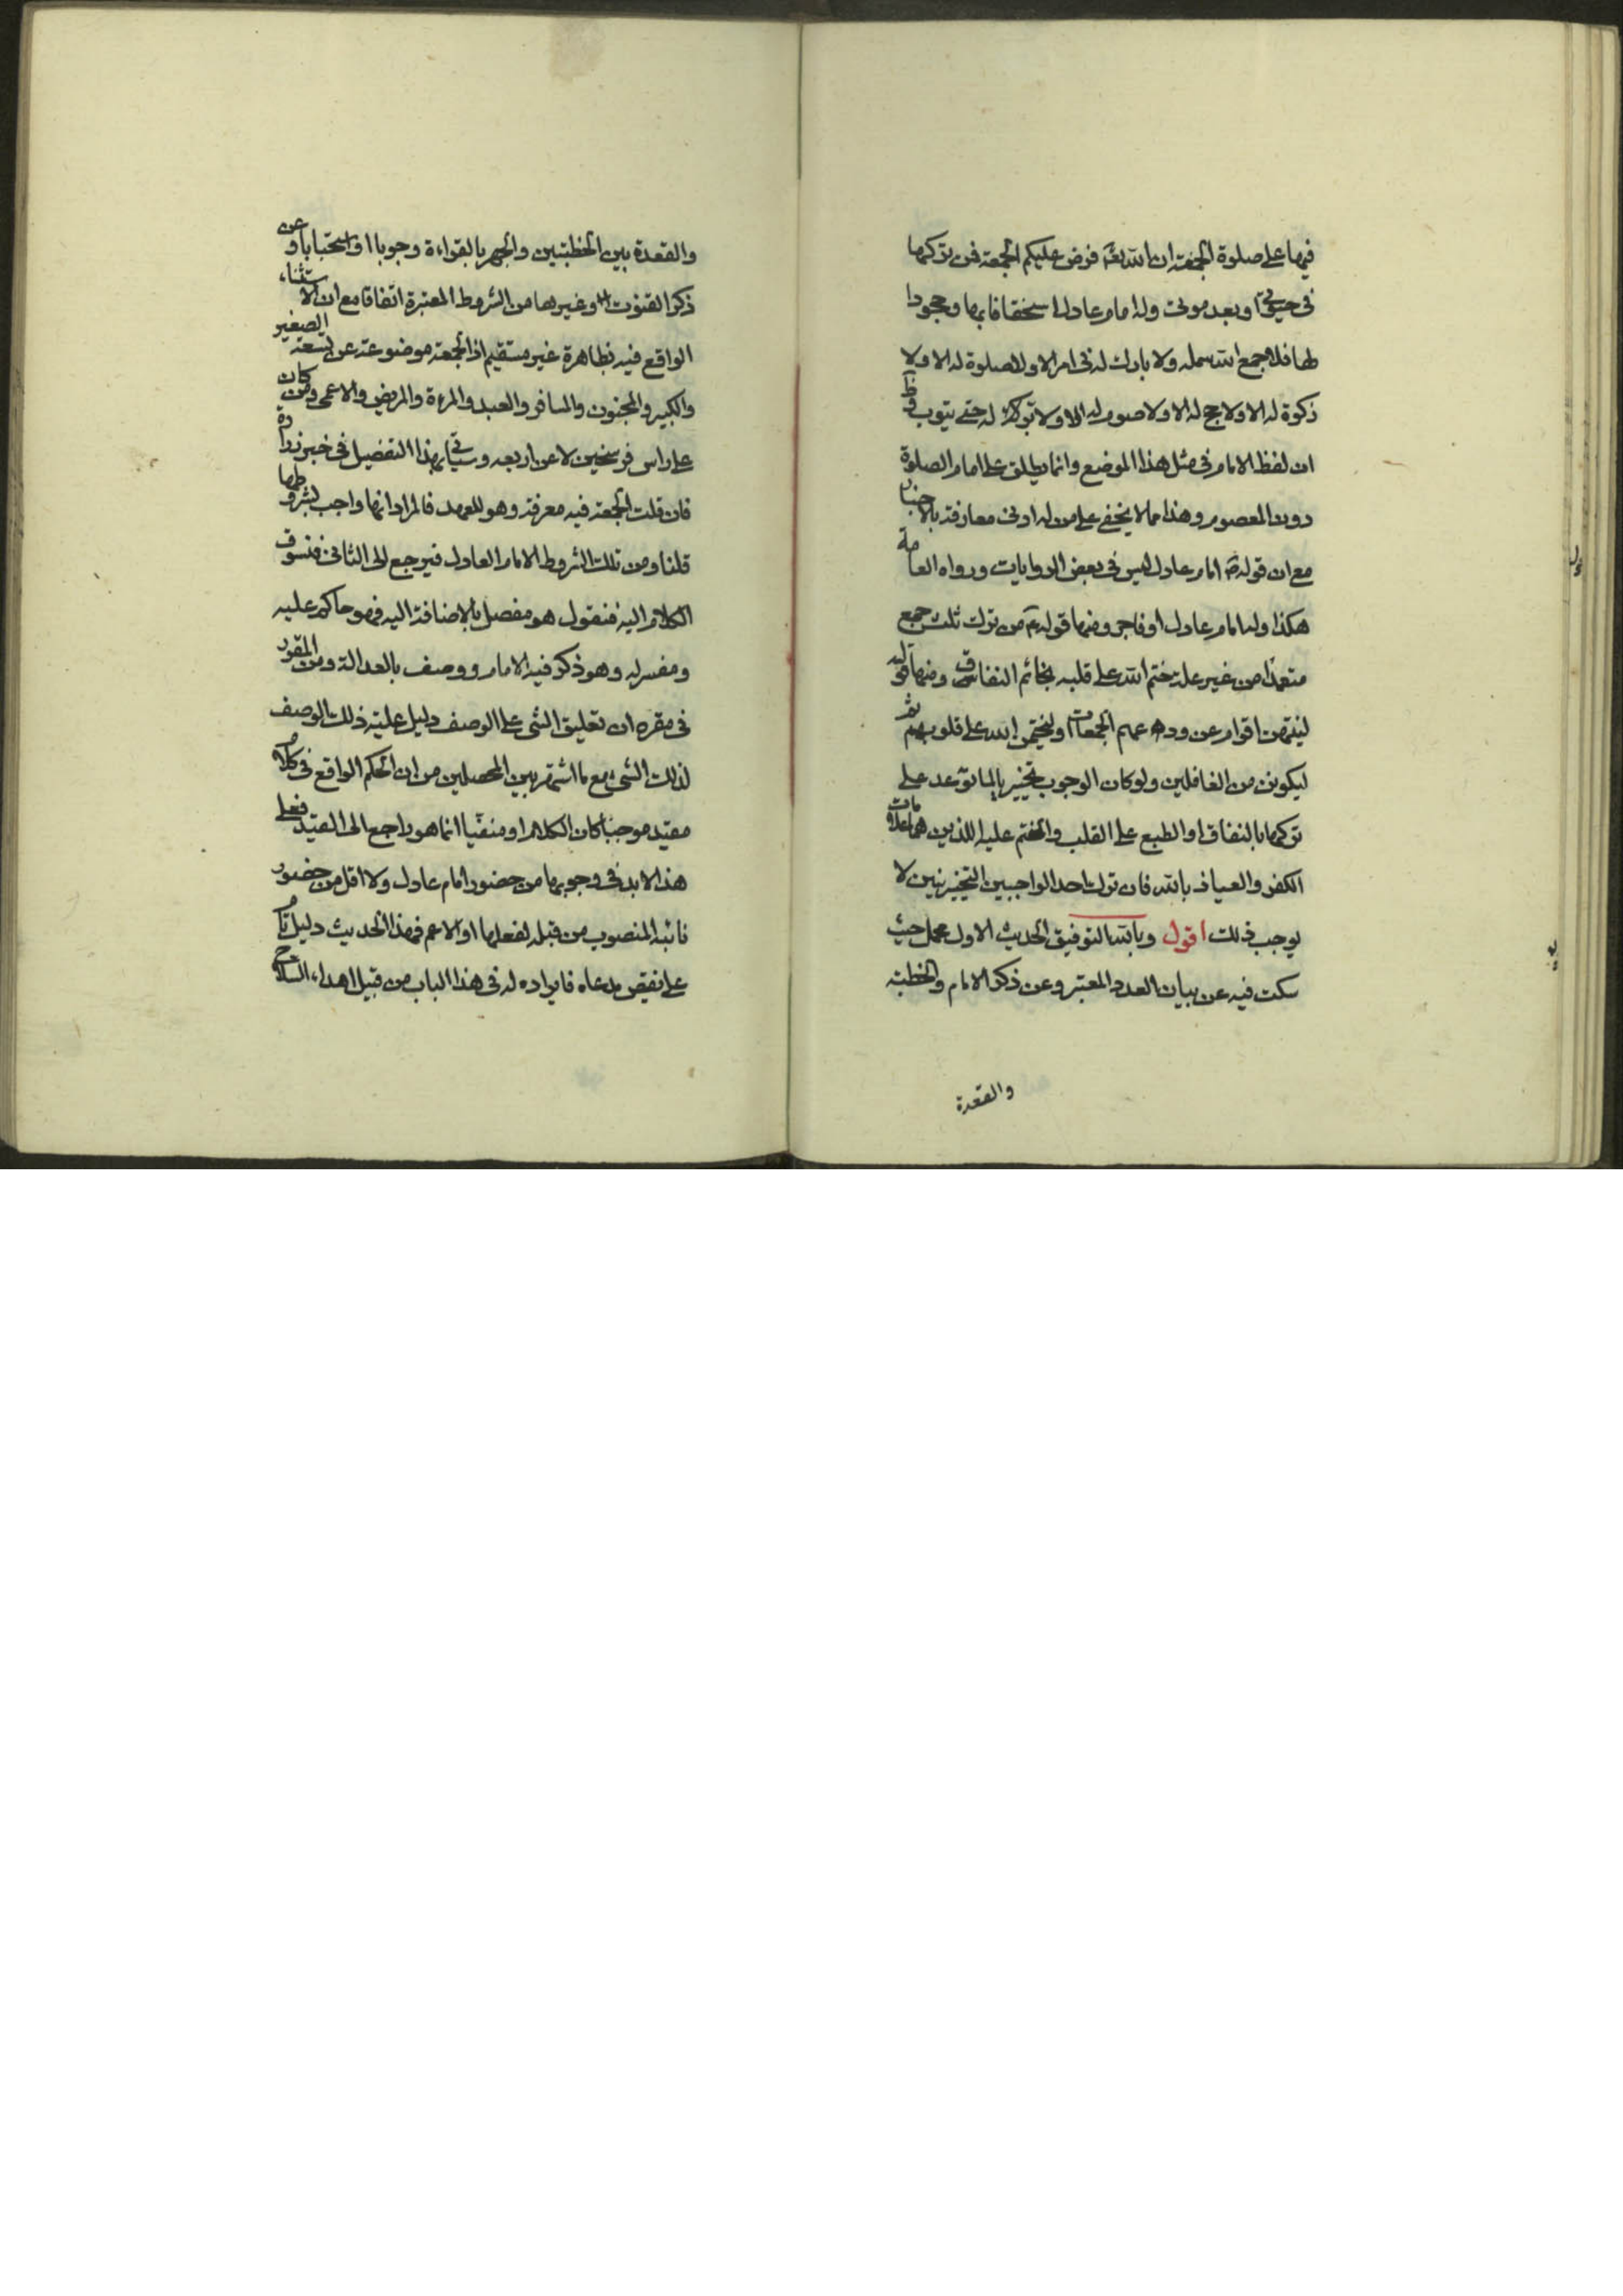 فيها على صلوة الجمعة ان الله تعم فرض عليكم الجمعة فمن تركها
فى حيوتى او بعد موتى وله امام عادل استخفافا بها وجحودا
لها فلا جمع الله شمله ولا بارك له فى امر الا ولا صلوة له الا ولا
زكوة له الا ولا حج له الا ولا صوم له الا ولا بركة له حتى يتوب وظ
ان لفظ الامام فى مثل هذا الموضع وانما يطلق على امام الصلوة
دون المعصوم وهذا مما لا يخفى على من له ادنى معارفة بالاخبار
مع ان قوله امام عادل ليس فى بعض الروايات ورواه العامة
هكذا وله امام عادل او فاجر ومنها قوله من ترك ثلث جمع
متعمدا من غير علة ختم الله على قلبه بخاتم النفاق ومنها قوله
لينتهن اقوام عن ودعهم الجمعات او ليختمن الله على قلوبهم ثم
ليكونن من الغافلين ولو كان الوجوب تخييريا لما توعد على
تركها بالنفاق او الطبع على القلب والختم عليه اللذين هما علامات
الكفر والعياذ بالله فان ترك احد الواجبين التخييريين لا
يوجب ذلك اقول وبالله التوفيق الحديث الاول مجمل حيث
سكت فيه عن بيان العدد المعتبر وعن ذكر الامام والخطبة
والقعدة
والقعدة بين الخطبتين والجهر بالقراءة وجوبا او استحبابا وعن
ذكر القنوت وغيرها من الشروط المعتبرة اتفاقا مع ان الاستثناء
الواقع فيه بظاهرة غير مستقيم اذ الجمعة موضوعة عن تسعة الصغير
والكبير والمجنون والمسافر والعبد والمرءة والمريض والاعمى ومن كان
على راس فرسخين لا عن اربعه وسياتى بهذا التفصيل فى خبر زرارة
فان قلت الجمعة فيه معرفة وهو للعهد فالمراد انها واجب بشروطها
قلنا ومن تلك الشروط الامام العادل فيرجع الى الثانى فنسوق
الكلام اليه فنقول هو مفصل بالاضافة اليه فهو حاكم عليه
ومفسر له وهو ذكر فيه الامام ووصف بالعدالة ومن المقرر
فى مقره ان تعليق الشى على الوصف دليل علية ذلك الوصف
لذلك الشىء مع ما اشتهر بين المحصلين من ان الحكم الواقع فى كلام
مقيد موجبا كان الكلام او منفيا انما هو راجع الى القيد فعلى
هذا لابد فى وجوبها من حضور امام عادل ولا اقل من حضور
نائبه المنصوب من قبله لفعلها او الاعم فهذا الحديث دليل تام
على نقيض مدعاه فايراده له فى هذا الباب من قبيل اهداء السلاح